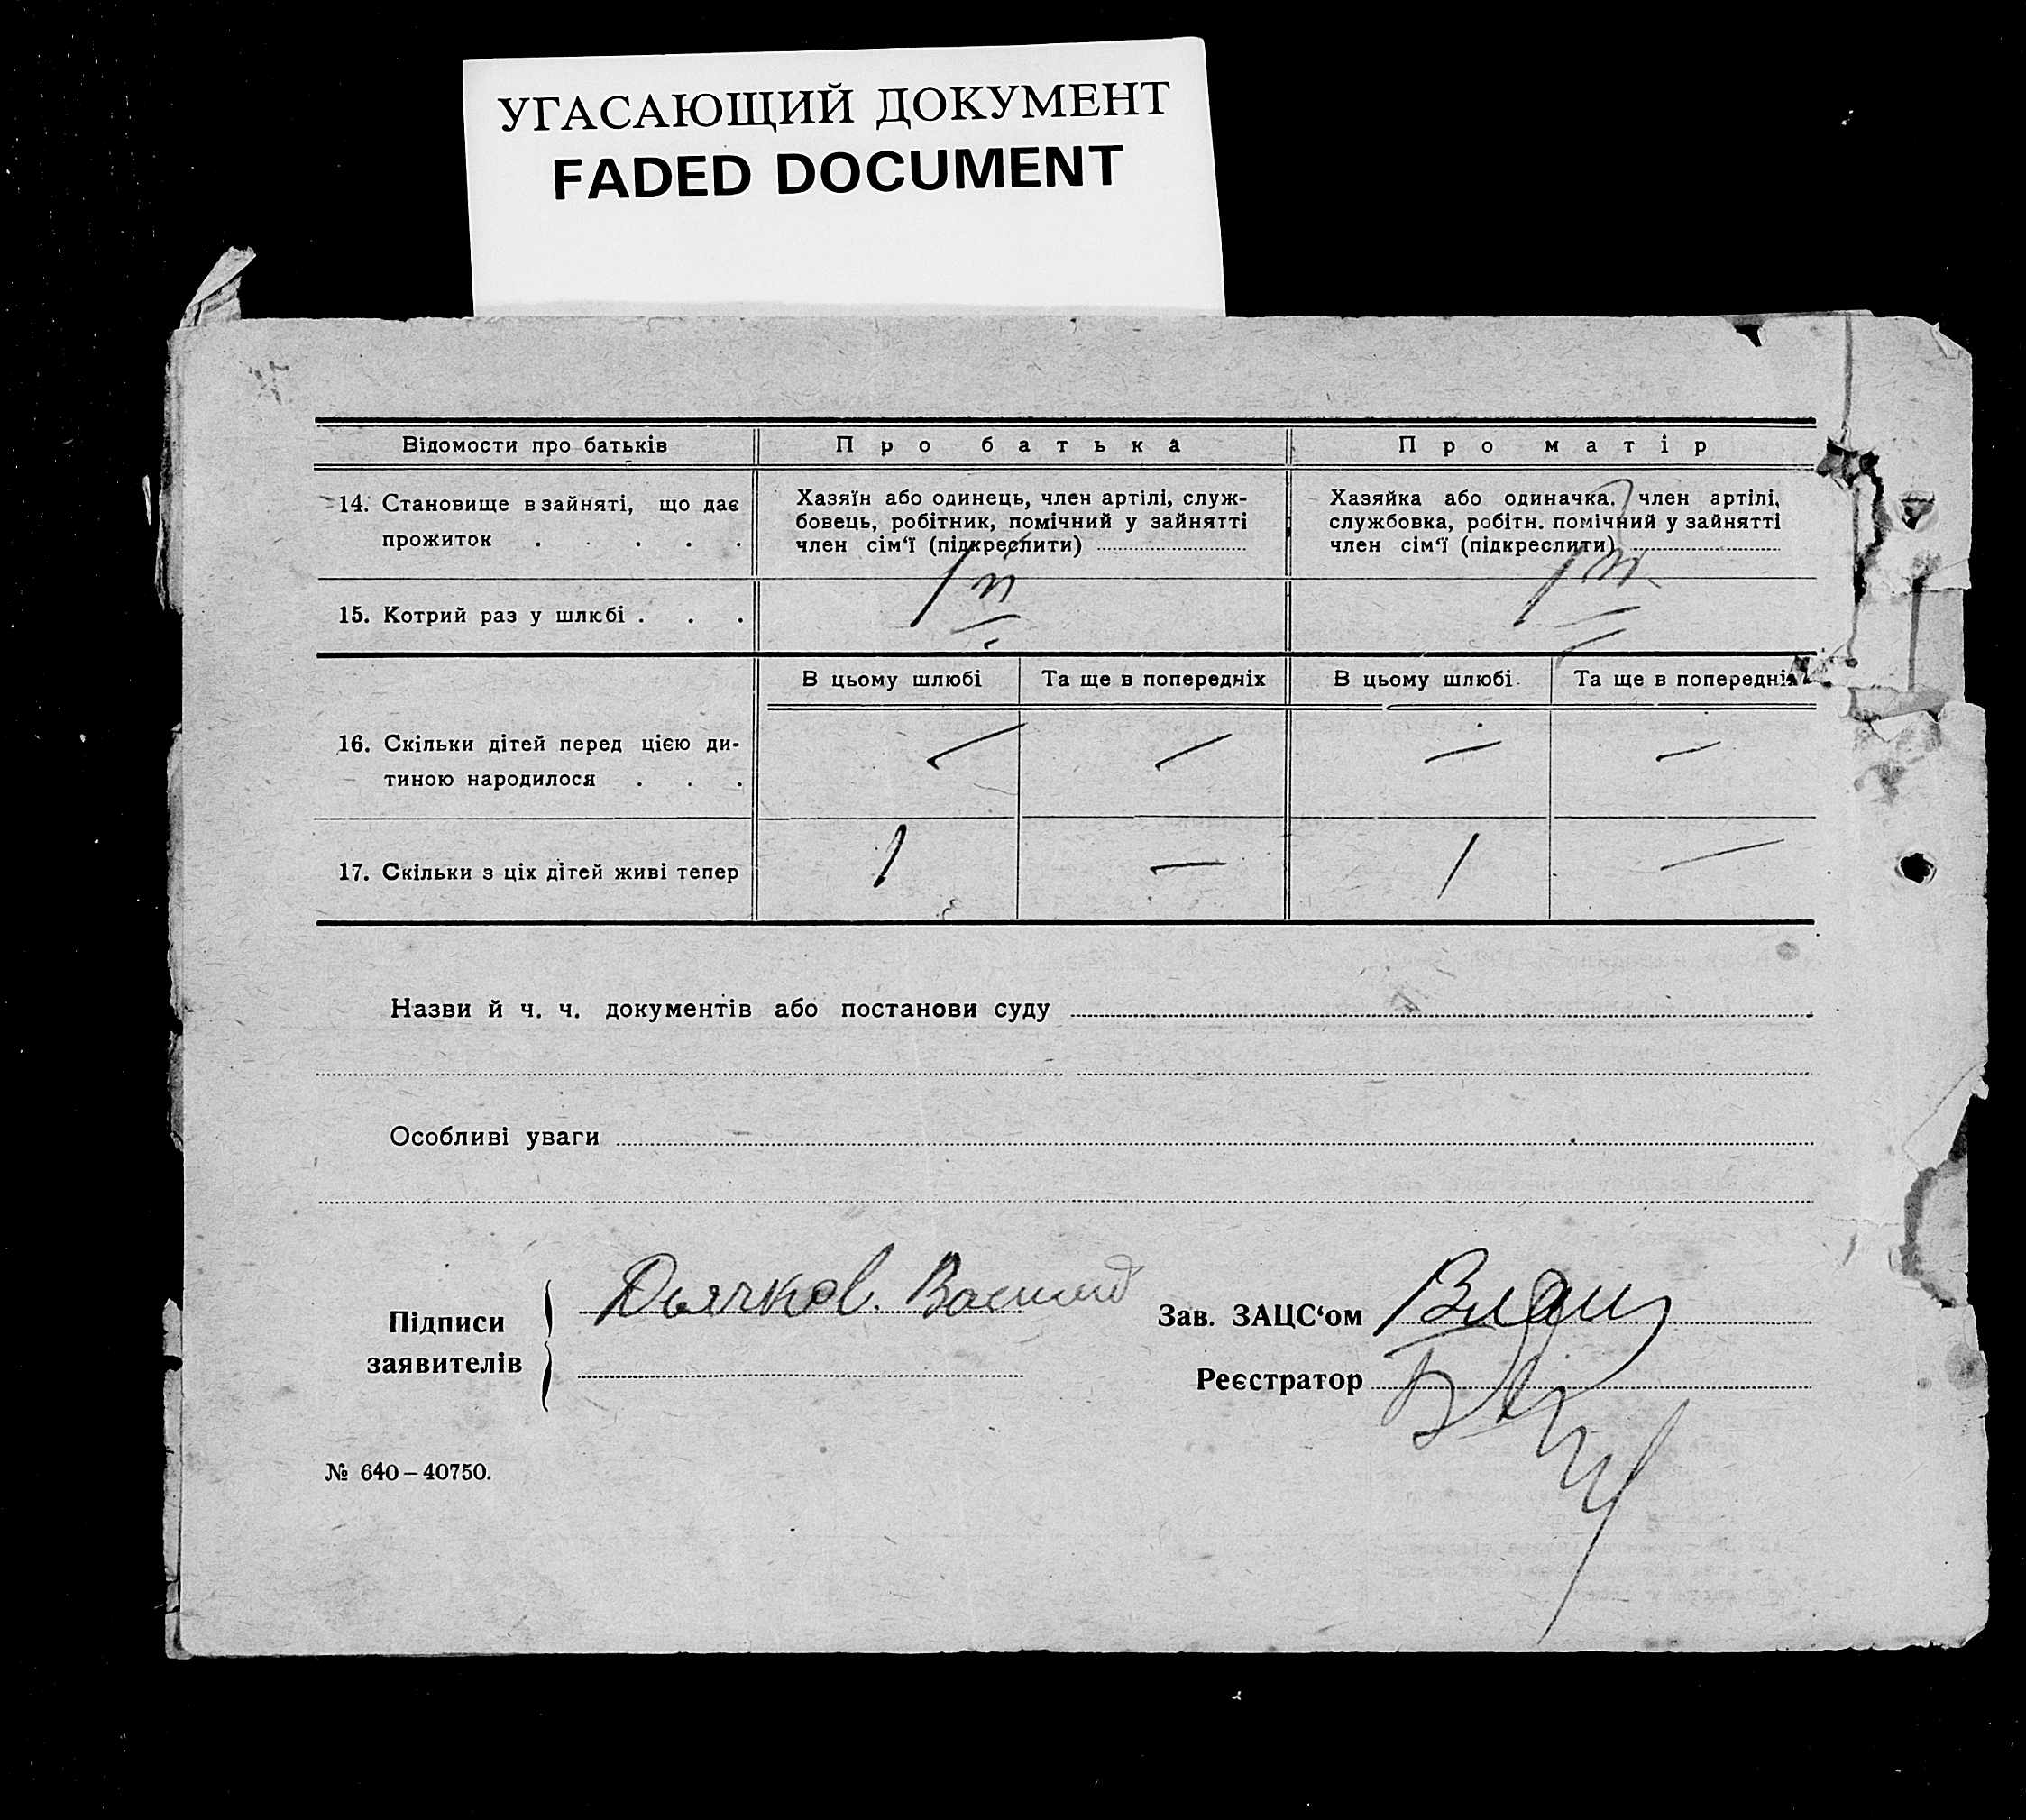 УГАСАЮЩИЙ ДОКУМЕНТ
FADED DOCUMENT
Відомости про батьків
Про батька
Про матір
14. Становище в зайняті, що дає
прожиток . . . . .
Хазяїн або одинець, член артілі, служ-
бовець, робітник, помічний у зайнятті
член сім‘ї (підкреслити)
Хазяйка або одиначка, член артілі,
службовка, робітн. помічний у зайнятті
член сім‘ї (підкреслити)
15. Котрий раз у шлюбі . . .
1
1
В цьому шлюбі
Та ще в попередніх
В цьому шлюбі
Та ще в попередніх
16. Скільки дітей перед цією ди-
тиною народилося . . .
— — — —
17. Скільки з ціх дітей живі тепер
1 — 1 —
Назви й ч. ч. документів або постанови суду
Особливі уваги
Підписи
заявителів
Дьячков. Василий
Зав. ЗАЦС‘ом
Реєстратор
№ 640 – 40750.